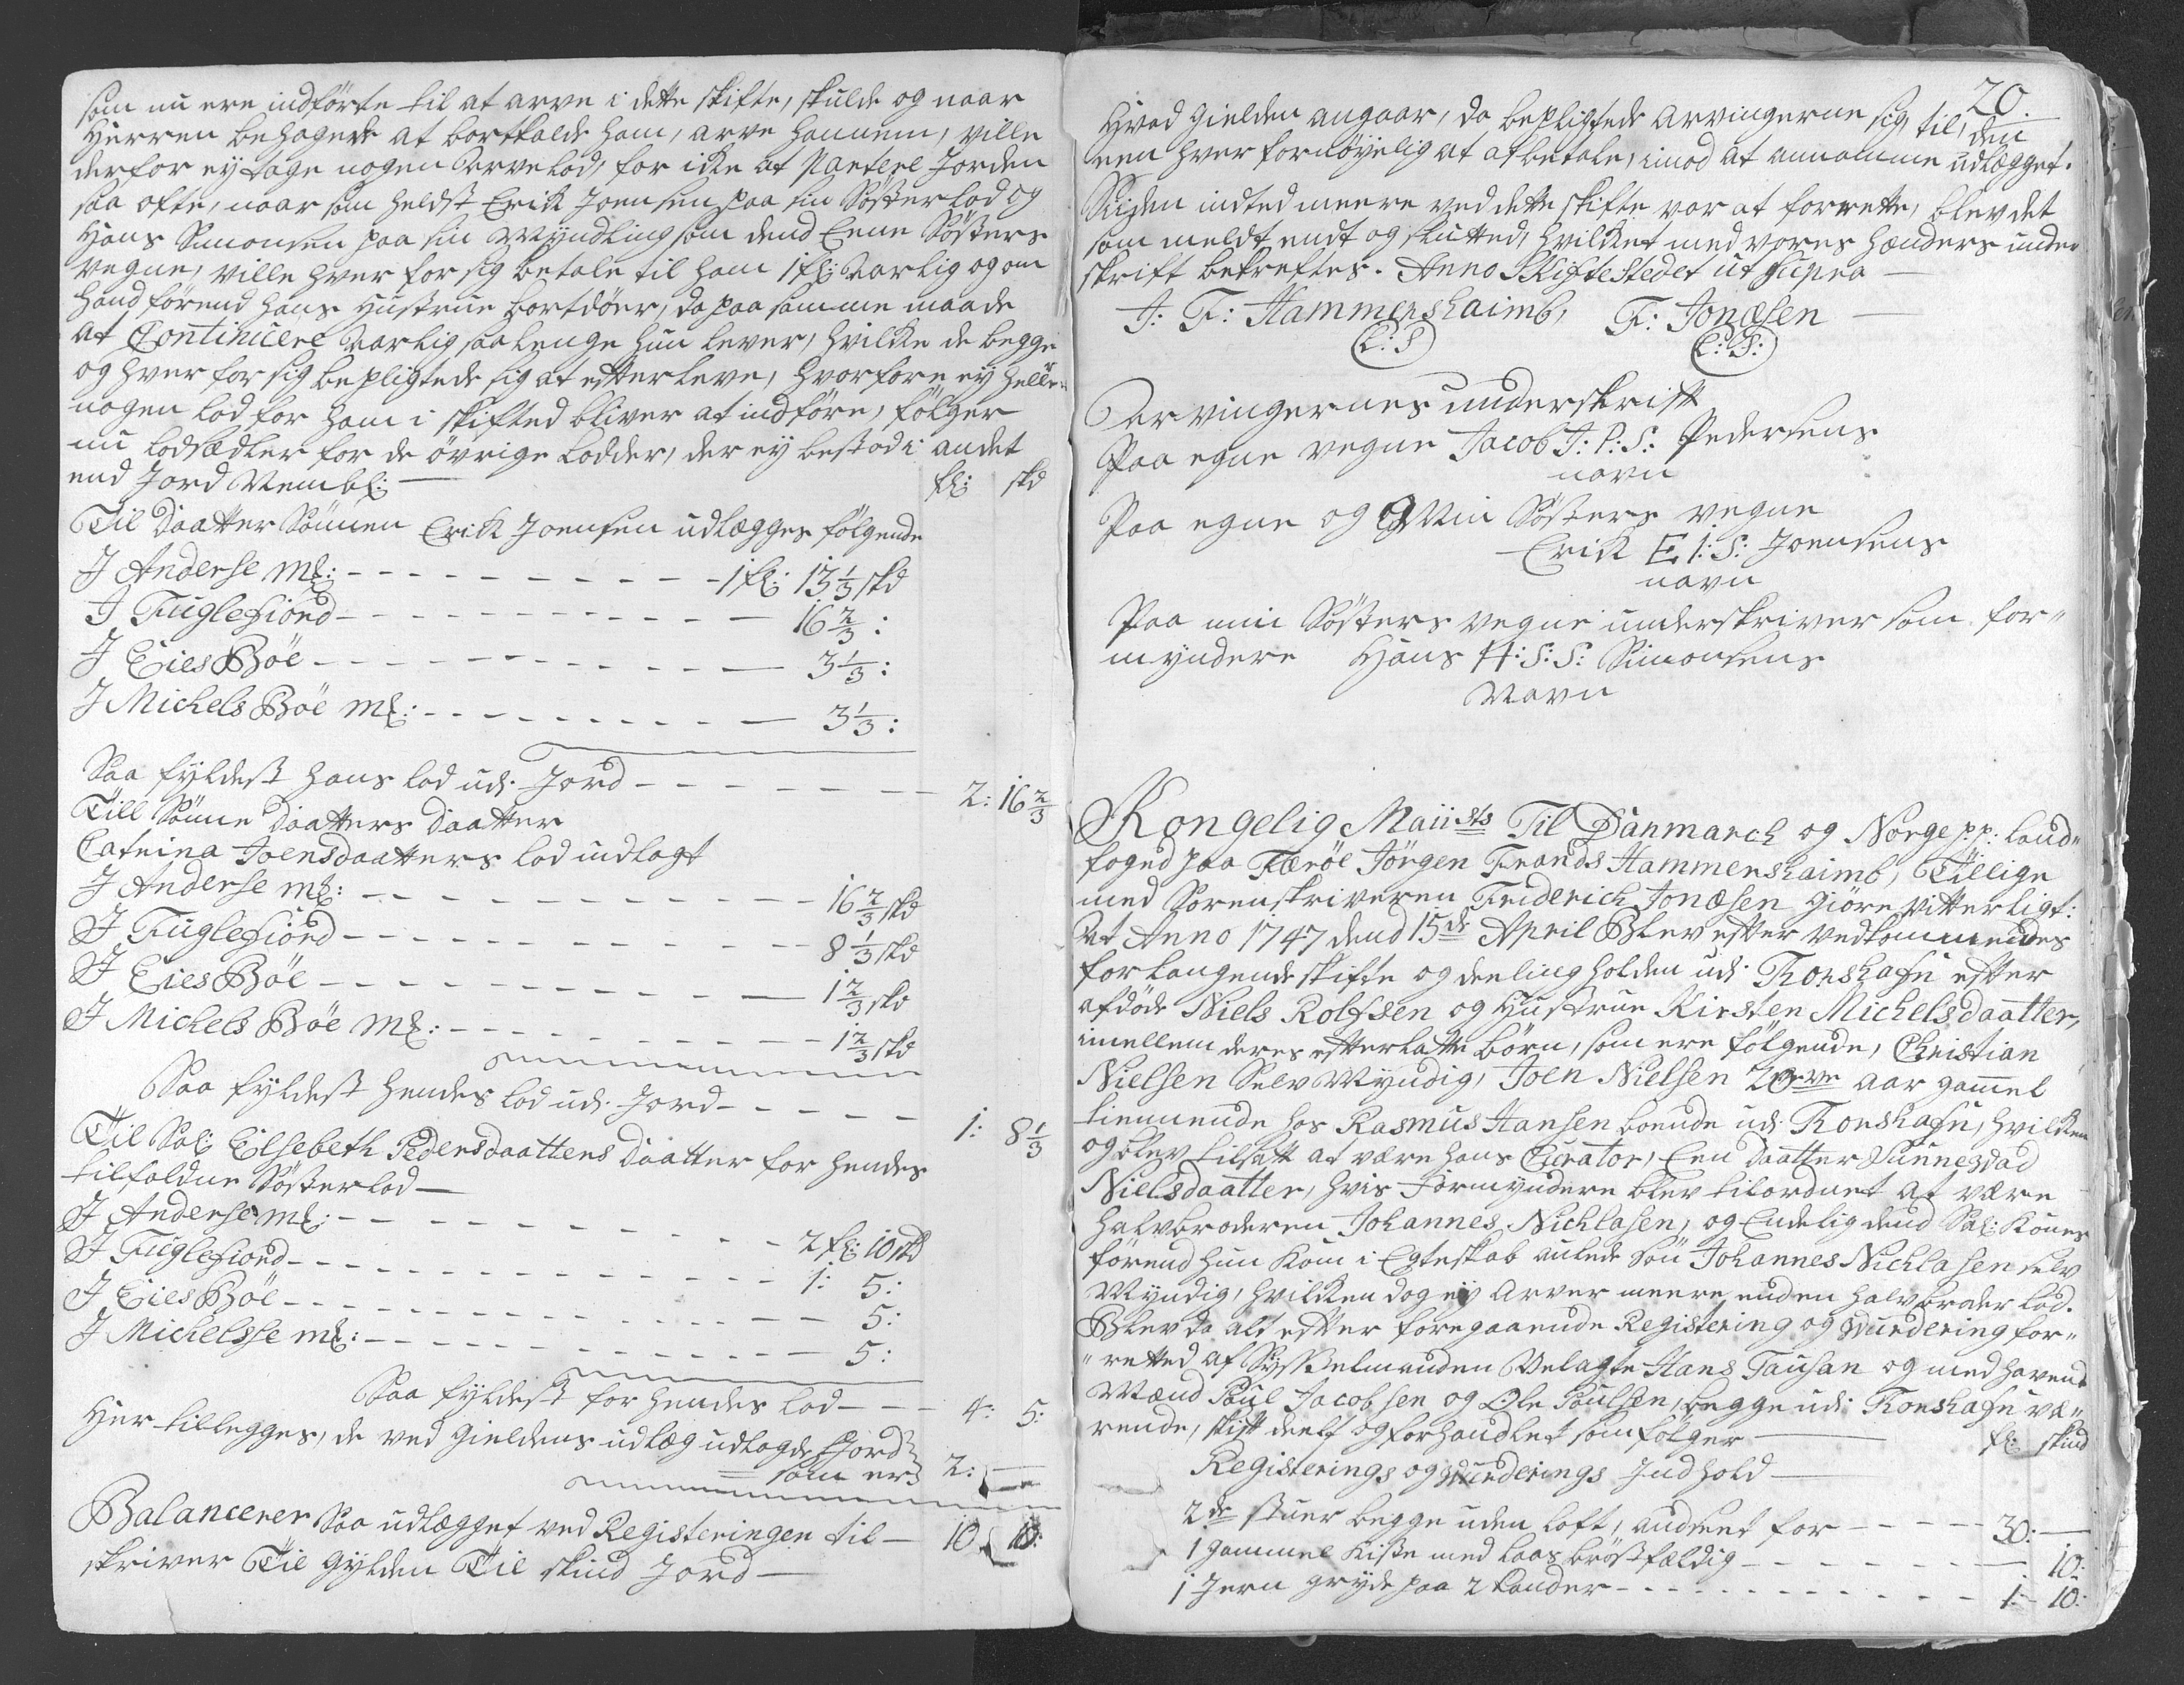 som nu ere indførte til at arve i dette skifte, skulde og naar
Herren behagede at bortkalde ham, arve hannem, ville
derfor ey tage nogen Arvelod, for icke at Partere Jorden
saa ofte, naar som heldst Erick Joensen paa sin Søsterlod og
Hans Simonsen paa sin Myndling som dend Eene Søsters
vegne, ville hver for sig betale til ham 1 fl: aarlig og om
hand førend hans Hustrue bortdøer, da paa samme maade
at Continuere aarlig saa lenge hun lever, hvilcke de begge
og hver for sig bepligtede sig at efterleve, hvorfore ey heller
nogen lod for ham i skifted bliver at indføre, følger
nu lodsedler for de øvrige Lodder, der ey bestod i andet
end Jord Nembl:
fl: skd
Til Daatter Sønnen Erick Joensen udlægges følgende
J Anderse ml: - - - 1 fl: 13 1/3 skd
J Fuglefiord - - - 16 2/3 :
J Eies Bøe - - - 3 1/3 :
J Michels Bøe ml: - - - 3 1/3 :
Saa fyldest hans lod udj Jord - - - 2: 16 2/3
Till Sønne Daatters Daatter
Catrina Joensdaatters lod udlagt
J Anderse ml: - - - 16 2/3 skd
J Fuglefiord - - - 8 1/3 skd
J Eies Bøe - - - 1 2/3 skd
J Michels Bøe ml: - - - 1 2/3 skd
Saa fyldest hendes lod udj Jord - - - 1: 8 1/3
Til Sal: Elsebeth Pedersdaatters Daatter for hendes
tilfaldne Søsterlod
J Anderse ml: - - - 2 fl: 10 skd
J Fuglefiord - - - 1: 5:
J Eies Bøe - - - 5:
J Michelsse ml: - - - 5:
Saa fyldest for hendes lod - - - 4: 5:
Her tillegges, de ved Gieldens udlæg udlagde Jord
som er 2: —
Balancerer Saa udlægget ved Registeringen til — 10 10:
skriver Tie Gylden Tie skind Jord —
20.
Hvad Gielden angaar, da bepligtede Arvingerne sig til, den
een hver fornøyelig at afbetale, imod at annamme udlægget.
Siden indted meere ved dette skifte var at forrette, blev det
som meldt endt og sluttet, hvilcket med vores hænders under
skrift bekreftes. Anno Skiftestedet ut supra —
J: F: Hammershaimb, F: Jonæsen —
L: S L: S:
Arvingernes underskrift
Paa egne vegne Jacob J: P: S: Pedersens
navn
Paa egne og Min Søsters vegne
Erick E I: S: Joensens
navn
Paa min Søsters vegne underskriver som for„
myndere Hans H: S: S: Simonsens
Navn
Kongelig Maiists Til Danmarch og Norge p.p: land„
foged paa Færøe Jørgen Frands Hammershaimb, Tillige
med Sorenskriveren Friderich Jonæsen giøre vitterligt:
At Anno 1747 dend 15de April Blev efter vedkommendes
forlangende skifte og deeling holden udj Thorshafn efter
afdøde Niels Rolfsen og Hustrue Kirsten Michelsdaatter,
imellem deres efterlatte børn, som ere følgende, Christian
Nielsen Selv Myndig, Joen Nielsen 20yve aar gammel
tiennende hos Rasmus Hansen boende udj Thorshafn, hvilcken
og blev tilsatt at være hans Curator, Een Daatter Sunnevad
Nielsdaatter, hvis Formyndere blev tilordnet at være
halvbroderen Johannes Nichlasen, og Endelig dend Sal: Kones
førend hun kom i Egteskab aulede Søn Johannes Nichlasen selv
Myndig, hvilcken dog ey Arver meere enden halvbroder lod.
Blev da alt efter foregaaende Registering og Wurdering for„
„retted af Sysselmanden Velagte Hans Tausan og med havende
Mænd Poul Jacobsen og Ole Poulsen, begge udj Thorshafn væ„
rende, skift deelt og forhandlet som følger —
fl: skind
Registerings og Wurderings Indhold —
2de stuer begge uden loft, andseet for - - - 30: —
1 gammel Kiste med laas brøstfældig - - - 10:
1 Jern gryde paa 2 kander - - - 1: 10: